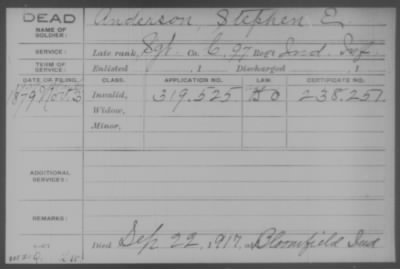 DEAD
NAME OF SOLDIER: Anderson, Stephen E.
SERVICE: Late rank, Sgt. Co. C, 97 Reg't Ind. Inf.
TERM OF SERVICE: Enlisted , 1 Discharged , 1
DATE OF FILING. CLASS. APPLICATION NO. LAW. CERTIFICATE NO.
1879 Nov. 3 Invalid, 319.525 238.257
Widow,
Minor,
ADDITIONAL SERVICES:
REMARKS:
Died Sep 22, 1917, at Bloomfield Ind